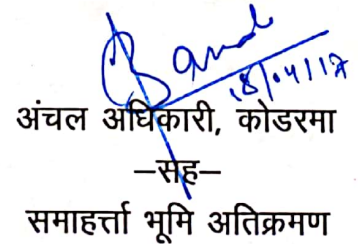 18/04/17
अंचल अधिकारी, कोडरमा
–सह–
समाहर्त्ता भूमि अतिक्रमण